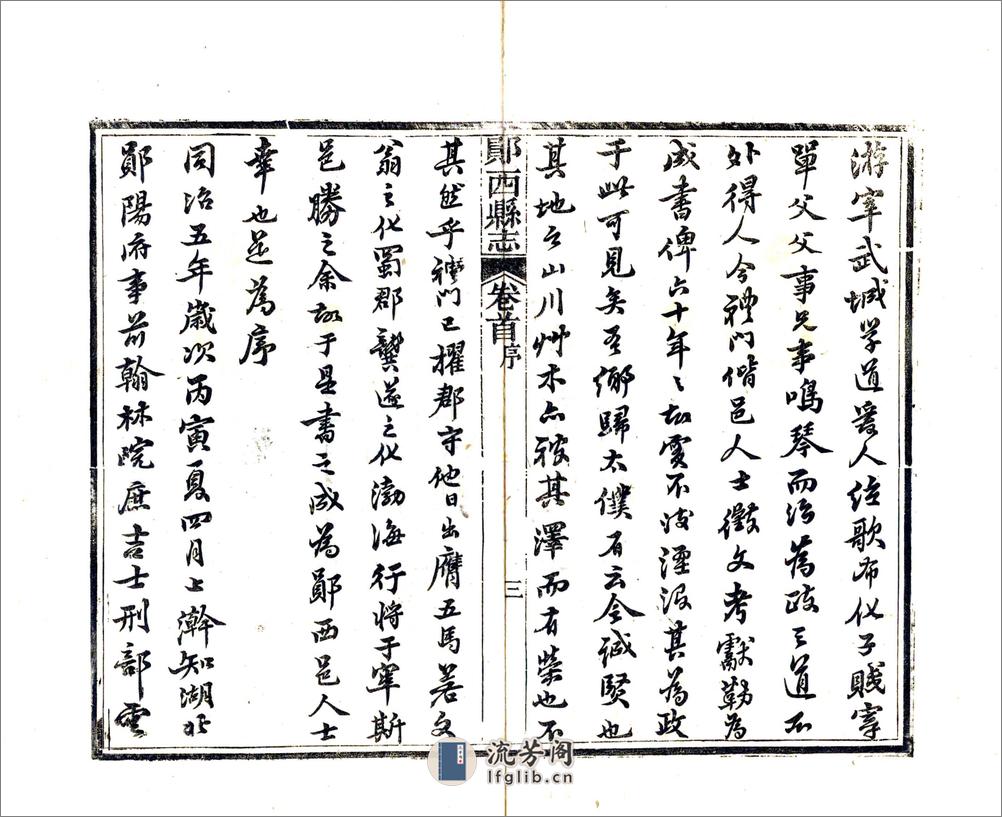 游宰武城学道爰人弦歌布化子賤宰
單父父事兄事鳴琴而治為政之道不
外得人今禮門偕邑人士徵文考獻勒為
成書俾六十年之故實不致湮没其為政
于此可見矣吾鄉歸太僕有云令誠賢也
其地之山川艸木亦被其澤而有榮也不
鄖西縣志 卷首 序 三
其然乎禮門已擢郡守他日出膺五馬若文
翁之化蜀郡龔遂之化渤海行將于宰斯
邑勝之余故于是書之成為鄖西邑人士
幸也是為序
同治五年歲次丙寅夏四月上澣知湖北
鄖陽府事前翰林院庶吉士刑部雲
流芳阁
lfglib.cn